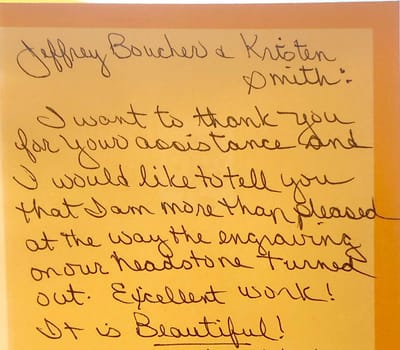 Jeffrey Boucher & Kristen
Smith:
I want to thank you
for your assistance and
I would like to tell you
that I am more than pleased
at the way the engraving
on our headstone turned
out. Excellent work!
It is Beautiful!